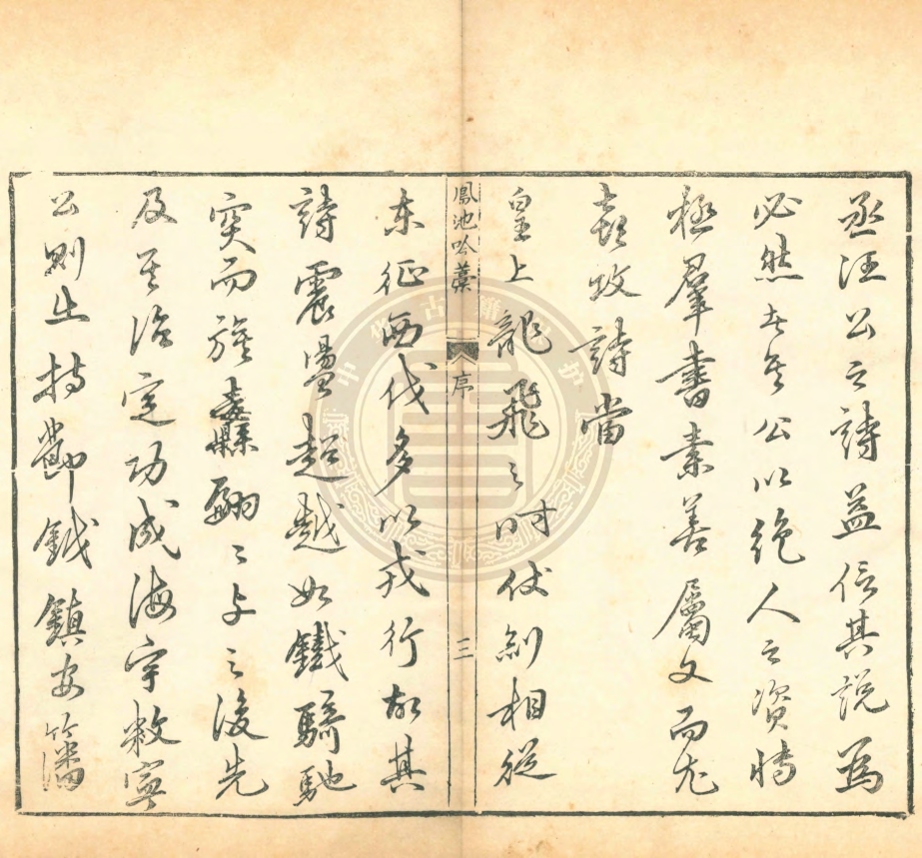 丞汪公之詩益信其說爲
必然者矣公以絕人之資博
極羣書素善屬文而尤
喜攻詩當
皇上龍飛之時仗劍相從
鳳池吟藁 序 三
東征西伐多以戎行故其
詩震盪超越如鐵騎馳
突而旌纛翩〻與之後先
及其治定功成海宇敉寧
公則出持節鉞鎮安藩